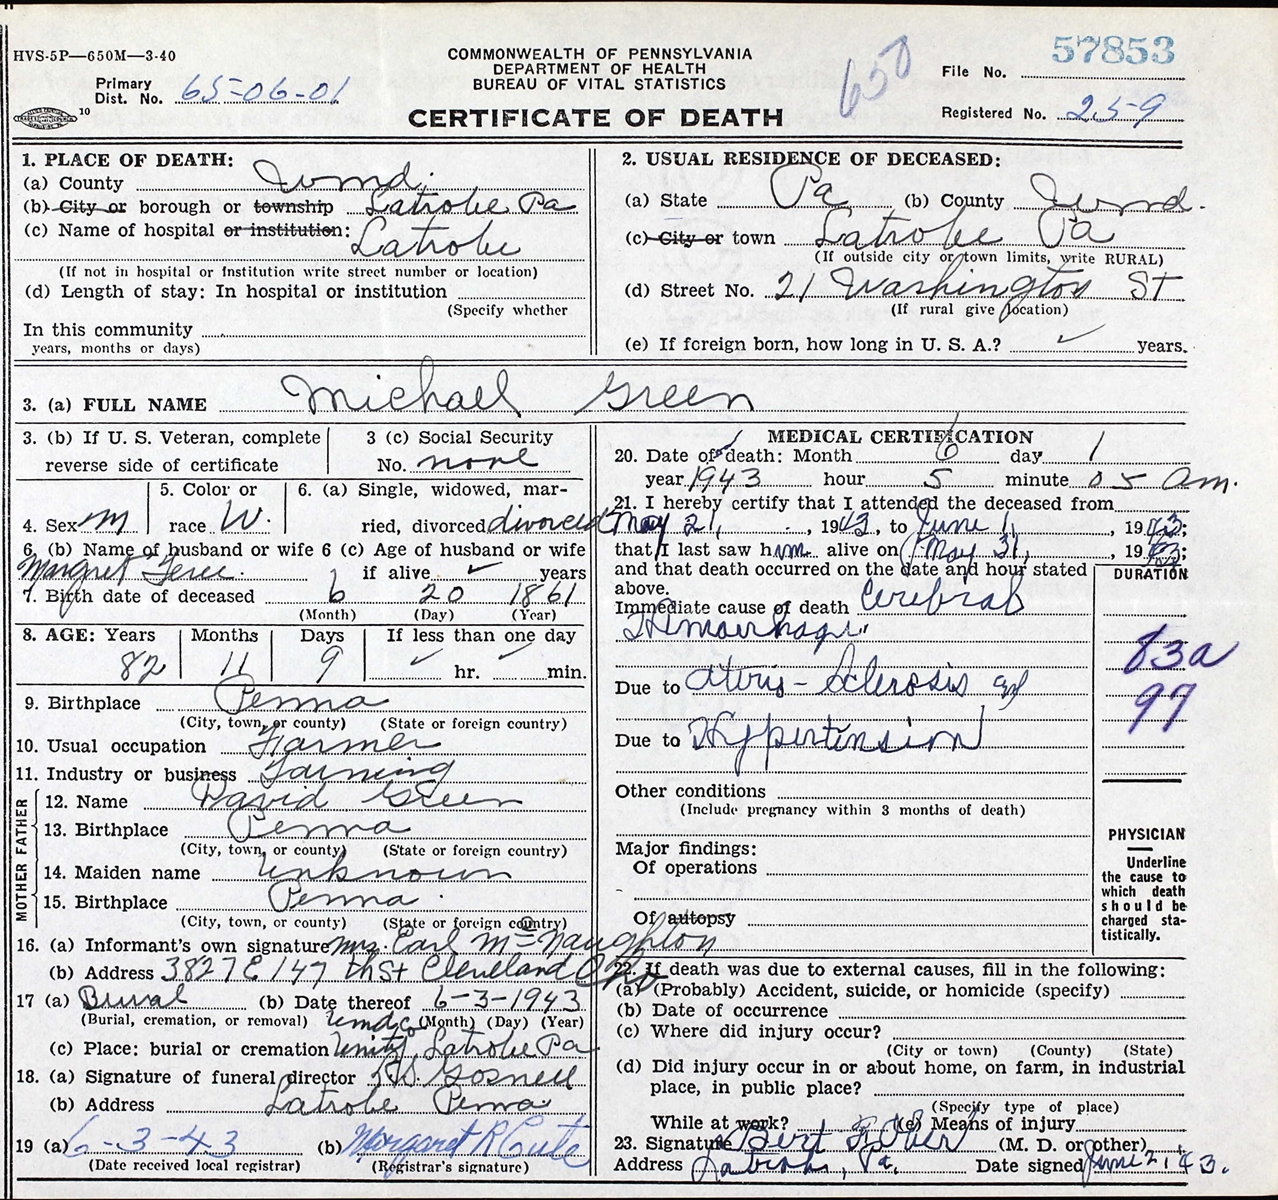 HVS-5P—650M—3-40
COMMONWEALTH OF PENNSYLVANIA
DEPARTMENT OF HEALTH
BUREAU OF VITAL STATISTICS
CERTIFICATE OF DEATH
650
57853
File No.
Primary Dist. No. 65-06-01
10
Registered No. 259
1. PLACE OF DEATH:
(a) County Wmd.
(b) City or borough or township Latrobe Pa
(c) Name of hospital or institution:
Latrobe
(If not in hospital or institution write street number or location)
(d) Length of stay: In hospital or institution
(Specify whether
In this community
years, months or days)
2. USUAL RESIDENCE OF DECEASED:
(a) State Pa (b) County Wmd.
(c) City or town Latrobe Pa
(If outside city or town limits, write RURAL)
(d) Street No. 21 Washington St
(If rural give location)
(e) If foreign born, how long in U. S. A.? ✓ years.
3. (a) FULL NAME Michael Green
3. (b) If U. S. Veteran, complete
reverse side of certificate
3 (c) Social Security
No. none
4. Sex M
5. Color or
race W.
6. (a) Single, widowed, mar-
ried, divorced divorced
6. (b) Name of husband or wife 6 (c) Age of husband or wife
Margret
if alive ✓ years
7. Birth date of deceased 6 20 1861
(Month) (Day) (Year)
8. AGE: Years Months Days If less than one day
82 11 9 ✓ hr. ✓ min.
9. Birthplace Penna
(City, town, or county) (State or foreign country)
10. Usual occupation Farmer
11. Industry or business Farming
FATHER
12. Name David Green
13. Birthplace Penna
(City, town, or county) (State or foreign country)
MOTHER
14. Maiden name Unknown
15. Birthplace Penna
(City, town, or county) (State or foreign country)
16. (a) Informant's own signature Mrs. Carl McNaughton
(b) Address 3827 E 147 th St Cleveland Oho
17 (a) Burial (b) Date thereof 6-3-1943
(Burial, cremation, or removal) (Month) (Day) (Year)
Wmd Co
(c) Place: burial or cremation Unity, Latrobe Pa
18. (a) Signature of funeral director Gosnell
(b) Address Latrobe Penna
19 (a) 6-3-43 (b) Margaret R
(Date received local registrar) (Registrar's signature)
MEDICAL CERTIFICATION
20. Date of death: Month 6 day 1
year 1943 hour 5 minute 05 am.
21. I hereby certify that I attended the deceased from
May 21, , 1943, to June 1, , 1943;
that I last saw him alive on May 31, , 1943;
and that death occurred on the date and hour stated
above.
DURATION
Immediate cause of death Cerebral
Hemorrhage
83a
Due to Aterio-Sclerosis and
97
Due to Hypertension
Other conditions
(Include pregnancy within 3 months of death)
Major findings:
Of operations
Of autopsy
PHYSICIAN
Underline
the cause to
which death
should be
charged sta-
tistically.
22. If death was due to external causes, fill in the following:
(a) (Probably) Accident, suicide, or homicide (specify)
(b) Date of occurrence
(c) Where did injury occur?
(City or town) (County) (State)
(d) Did injury occur in or about home, on farm, in industrial
place, in public place?
(Specify type of place)
While at work? (e) Means of injury
23. Signature Bert (M. D. or other)
Address Latrobe, Pa. Date signed June 2, 43.